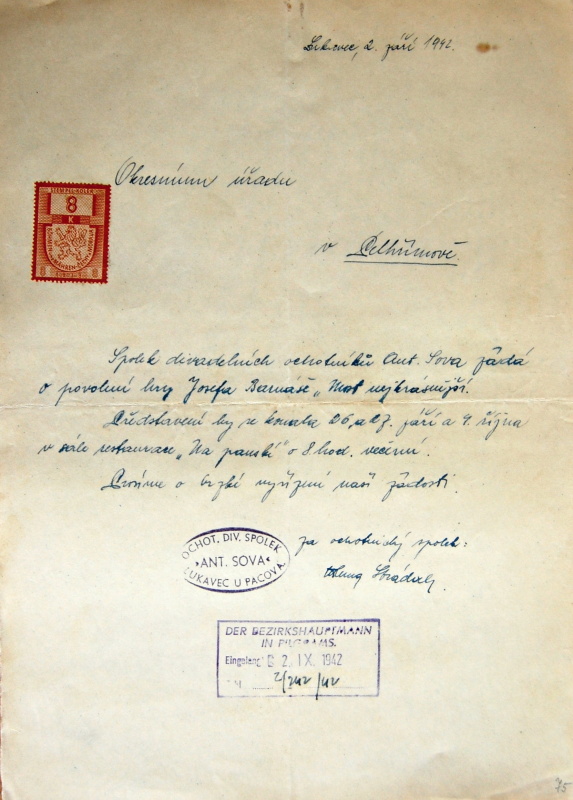 Lukavec, 2. září 1942.
Okresnímu úřadu
v Pelhřimově.
STEMPEL-KOLEK
8
K
8 8
Spolek divadelních ochotníků Ant. Sova žádá
o povolení hry Josefa "Most nejkrásnější.
Představení by se konala 26, a 27. září a 4. října
v sále restaurace "Na panské" o 8 hod. večerní.
Prosíme o brzké vyřízení naší žádosti.
za ochotnický spolek:
OCHOT. DIV. SPOLEK
"ANT. SOVA"
LUKAVEC U PACOVA.
DER BEZIRKSHAUPTMANN
IN PILGRAMS.
Eingelangt 2. IX. 1942
75